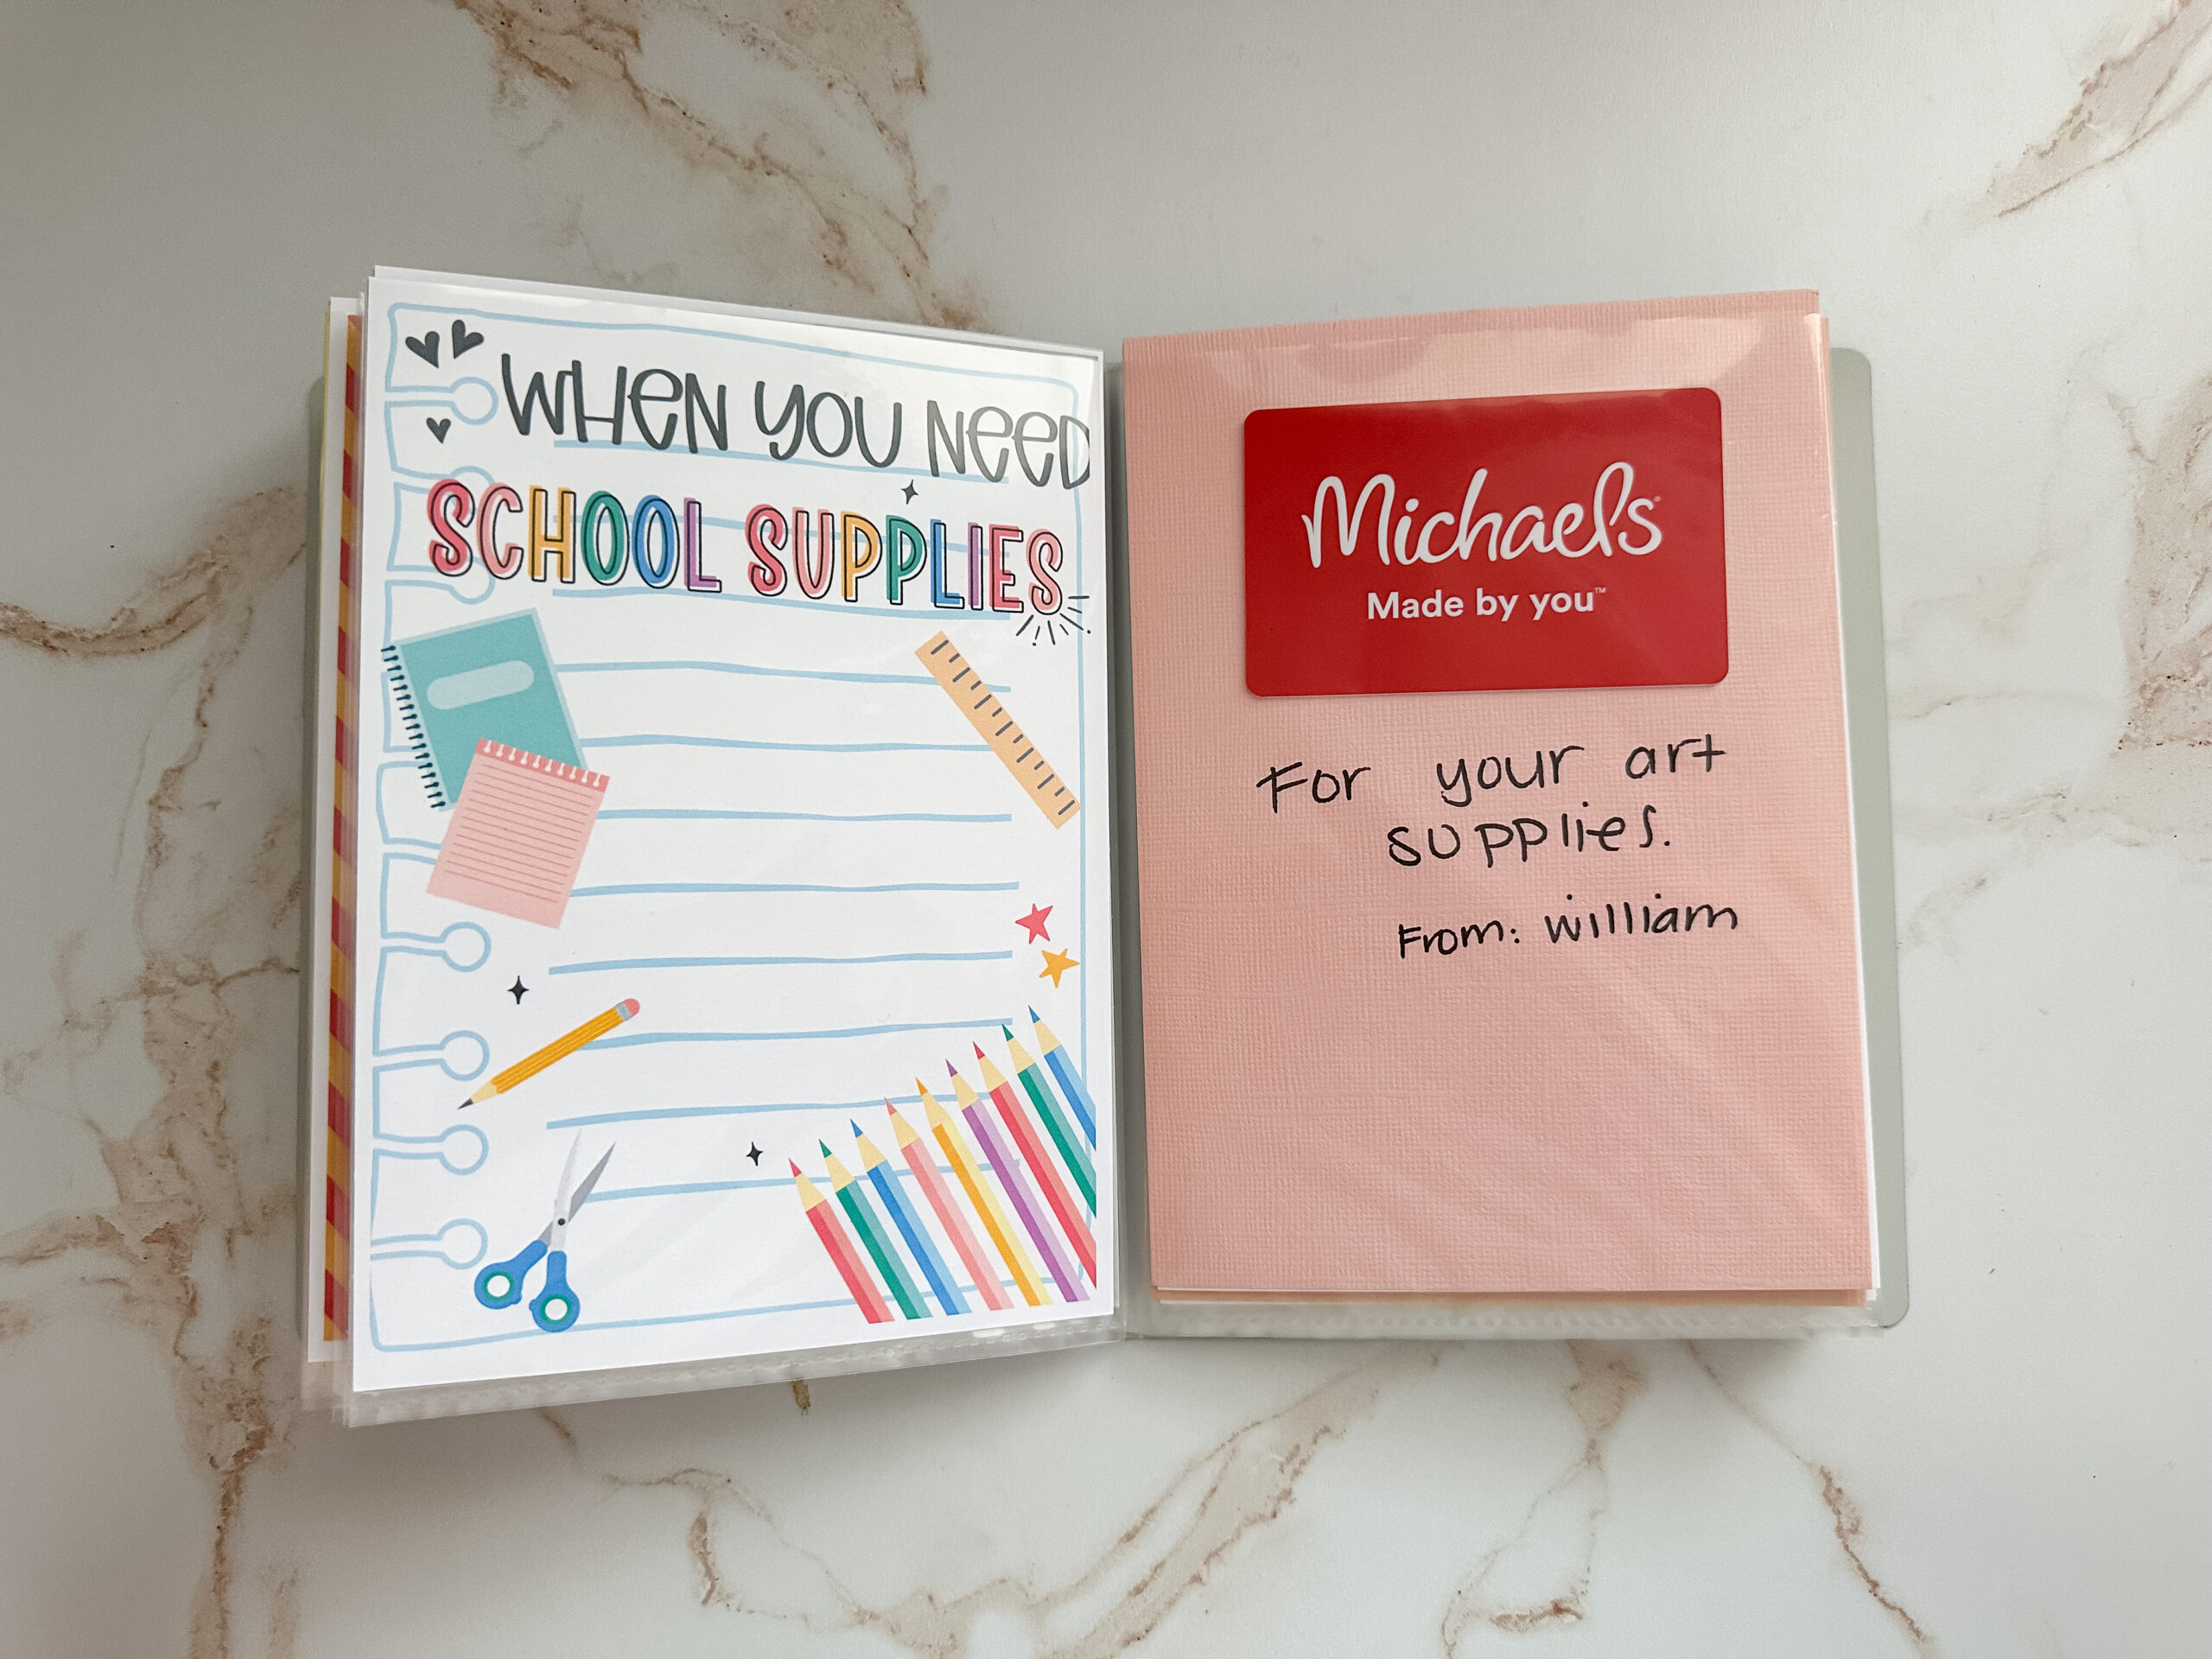 WHEN YOU NEED
SCHOOL SUPPLIES
Michaels
Made by you™
For your art
supplies.
From: william